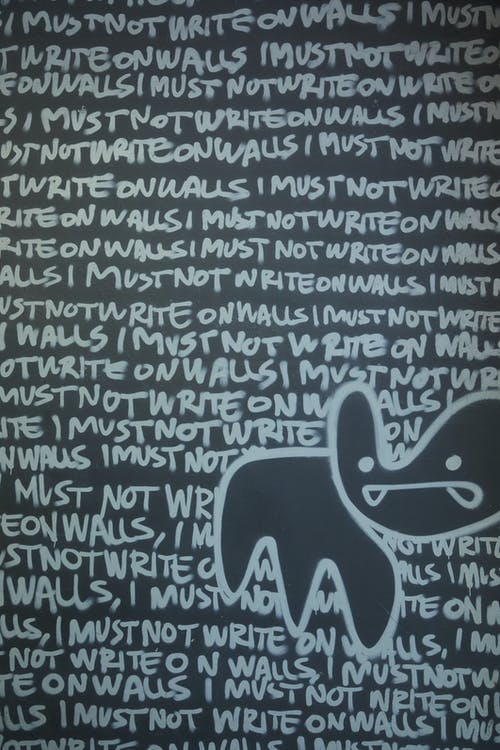 I MUST NOT WRITE ON WALLS I MUST
WRITE ON WALLS I MUST NOT WRITE
ON WALLS I MUST NOT WRITE ON WALLS I MUST NOT WRITE
I MUST NOT WRITE ON WALLS I MUST
NOT WRITE ON WALLS I MUST NOT WRITE
WRITE ON WALLS I MUST NOT WRITE
ON WALLS I MUST NOT WRITE ON WALLS
ON WALLS I MUST NOT WRITE ON WALLS
I MUST NOT WRITE ON WALLS I MUST
NOT WRITE ON WALLS I MUST NOT WRITE
I WALLS I MUST NOT WRITE ON WALLS
WRITE ON WALLS I MUST NOT
MUST NOT WRITE ON WALLS
I MUST NOT WRITE ON
WALLS I MUST NOT
MUST NOT WR
ON WALLS, I M
NOT WRITE NOT WRIT
WALLS, I MUST NO I MUS
I MUST NOT WRITE ON WALLS, I M
NOT WRITE ON WALLS, I MUST NOT W
ON WALLS I MUST NOT WRITE ON
I MUST NOT WRITE ON WALLS I MUS
WRITE ON WALLS I MUST NOT